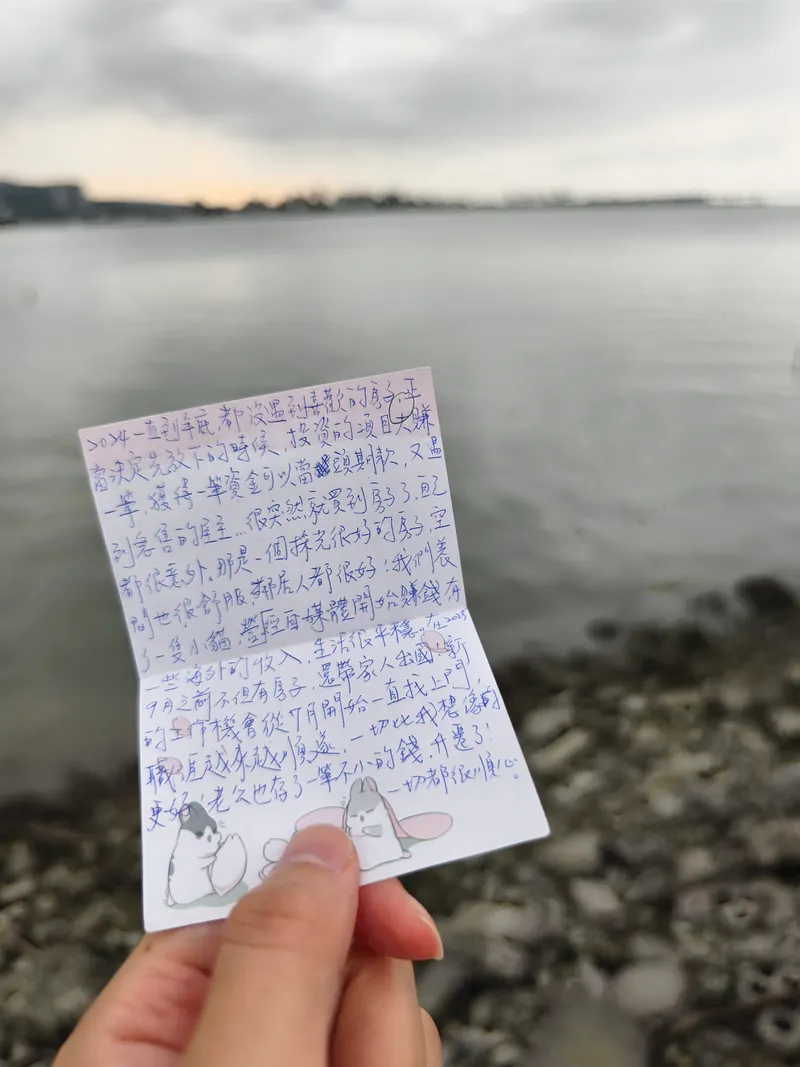 2024一直到年底,都沒遇到喜歡的房子
當決定先放下的時候,投資的項目大賺
一筆,獲得一筆資金可以當頭期款,又遇
到急售的屋主...很突然就買到房子了,自己
都很意外。那是一個採光很好的房子,空
間也很舒服,鄰居人都很好!我們養
了一隻小貓,營經自媒體開始賺錢,有
一些海外的收入,生活很平穩。在2025
9月之前不但有房子,還帶家人出國,新
的工作機會從7月開始一直找上門,
職涯越來越順遂,一切比我想像的
更好!老公也存了一筆不小的錢,升遷了!
一切都很順心。